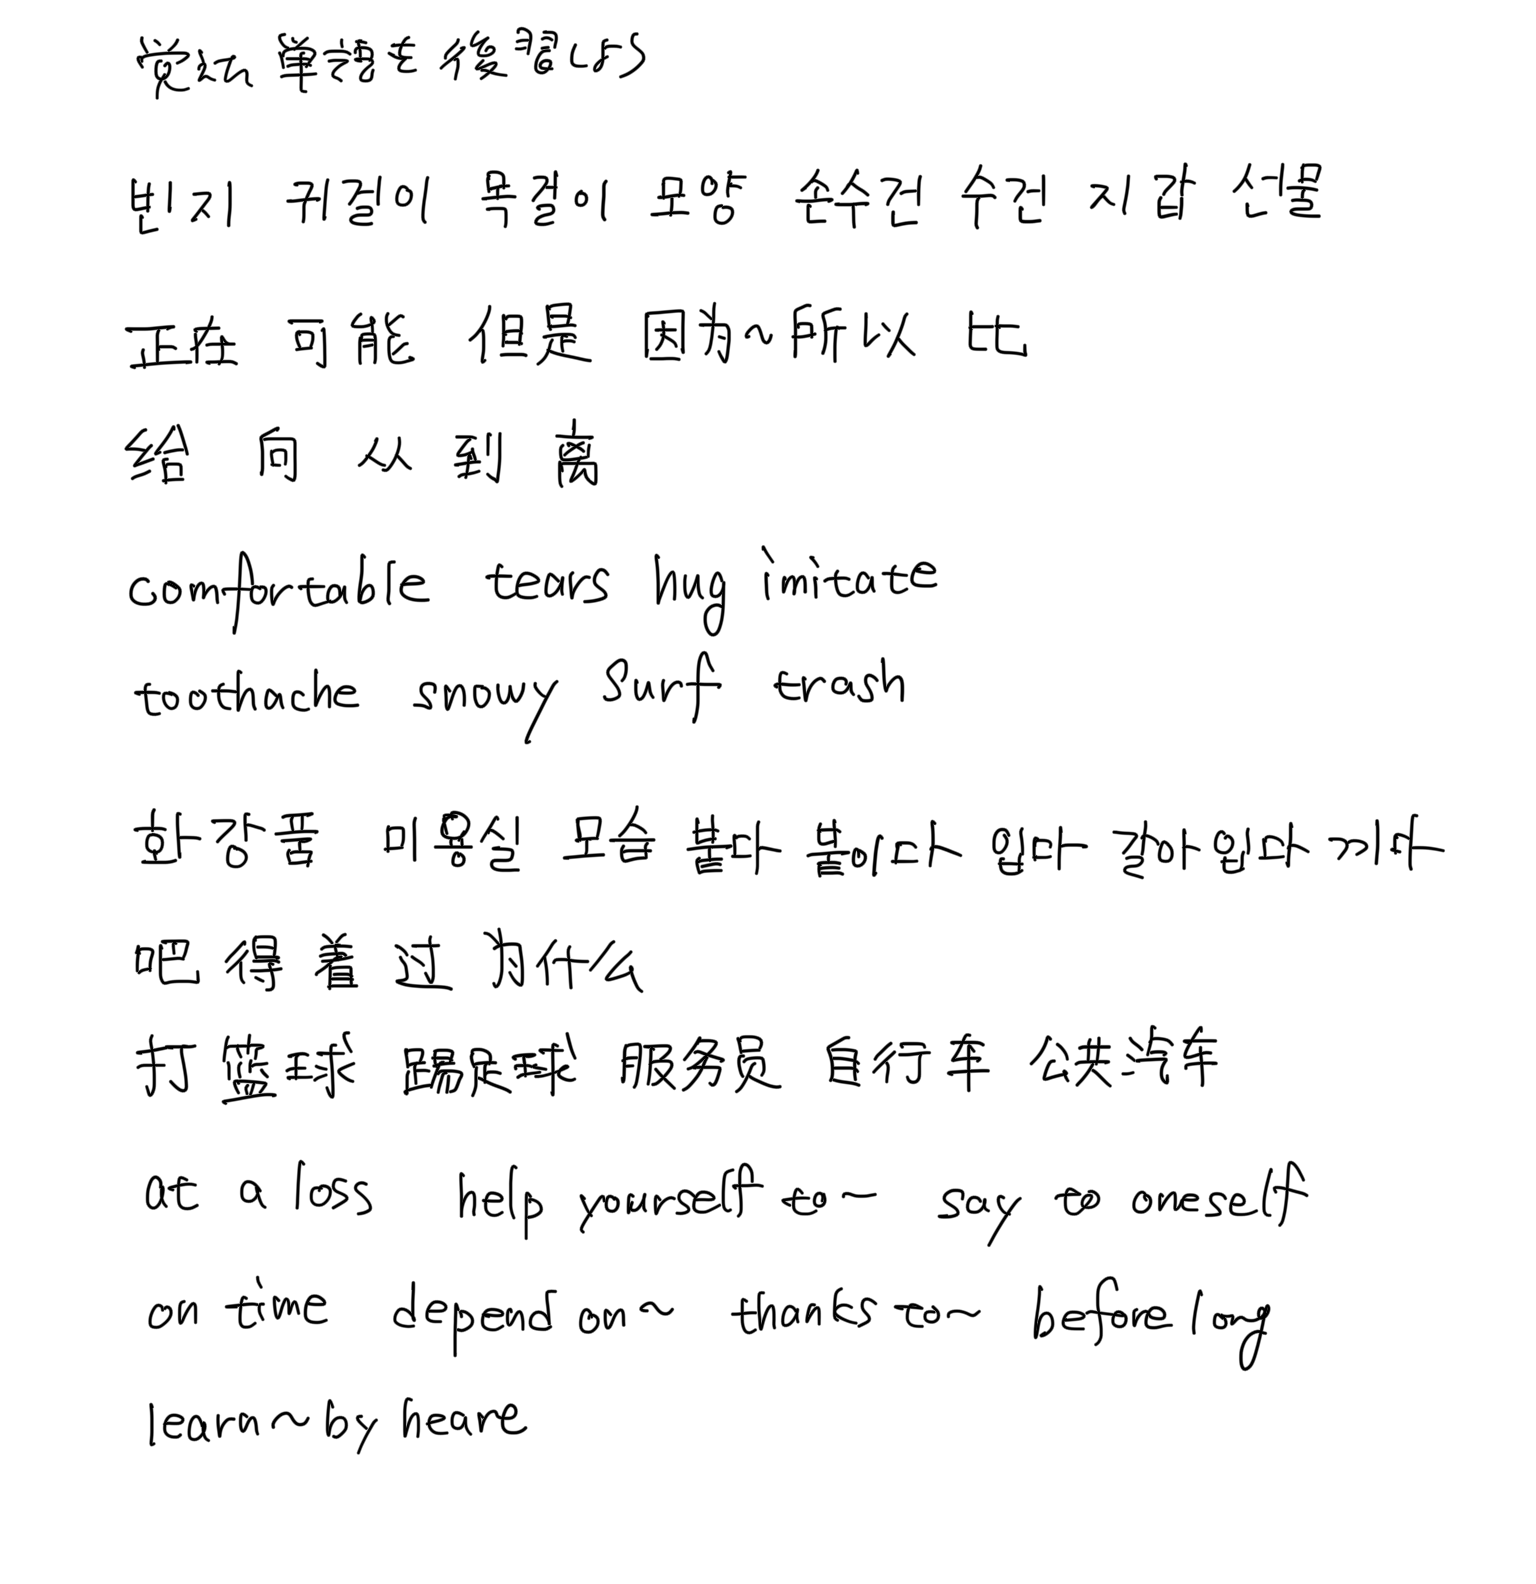 覚えた 単語を 復習しよう
빈지 귀걸이 목걸이 모양 손수건 수건 지갑 선물
正在 可能 但是 因为~所以 比
给 向 从 到 离
comfortable tears hug imitate
toothache snowy surf trash
화강품 미용실 모습 붙다 붙이다 입다 갈아입다 끼다
吧 得 着 过 为什么
打篮球 踢足球 服务员 自行车 公共汽车
at a loss help yourself to~ say to oneself
on time depend on~ thanks to~ before long
learn~by heare